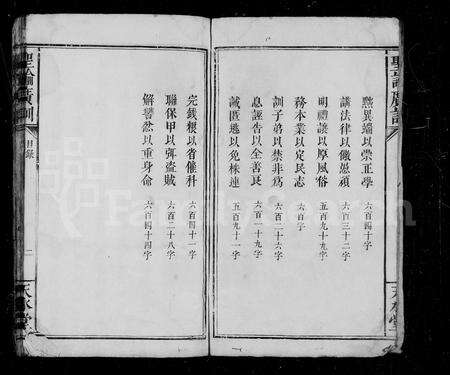 聖諭廣訓
黜異端以崇正學 六百四十字
講法律以儆愚頑 六百三十二字
明禮讓以厚風俗 五百九十九字
務本業以定民志 六百字
訓子弟以禁非為 六百二十六字
息誣告以全善良 六百一十九字
誡匿逃以免株連 五百九十一字
天水堂
完錢糧以省催科 六百四十一字
聯保甲以弭盜賊 六百二十八字
解讐忿以重身命 六百四十四字
聖諭廣訓 目錄 二
天水堂